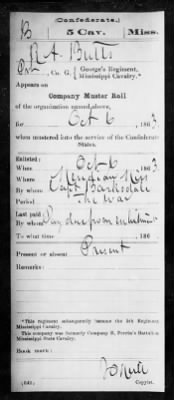 (Confederate.)
B 5 Cav. Miss.
R. A. Butts
Pvt, Co. G, George's Regiment,
Mississippi Cavalry.*
Appears on
Company Muster Roll
of the organization named above,
for Oct 6, 1863
when mustered into the service of the Confederate
States.
Enlisted:
When Oct 6, 1863.
Where Meridian Miss
By whom Capt Barksdale
Period The War
Last paid:
By whom Pay due from enlistment
To what time , 186
Present or absent Present
Remarks:
*This regiment subsequently became the 5th Regiment
Mississippi Cavalry.
This company was formerly Company B, Perrin's Battalion
Mississippi State Cavalry.
Book mark:
(642)
Copyist.